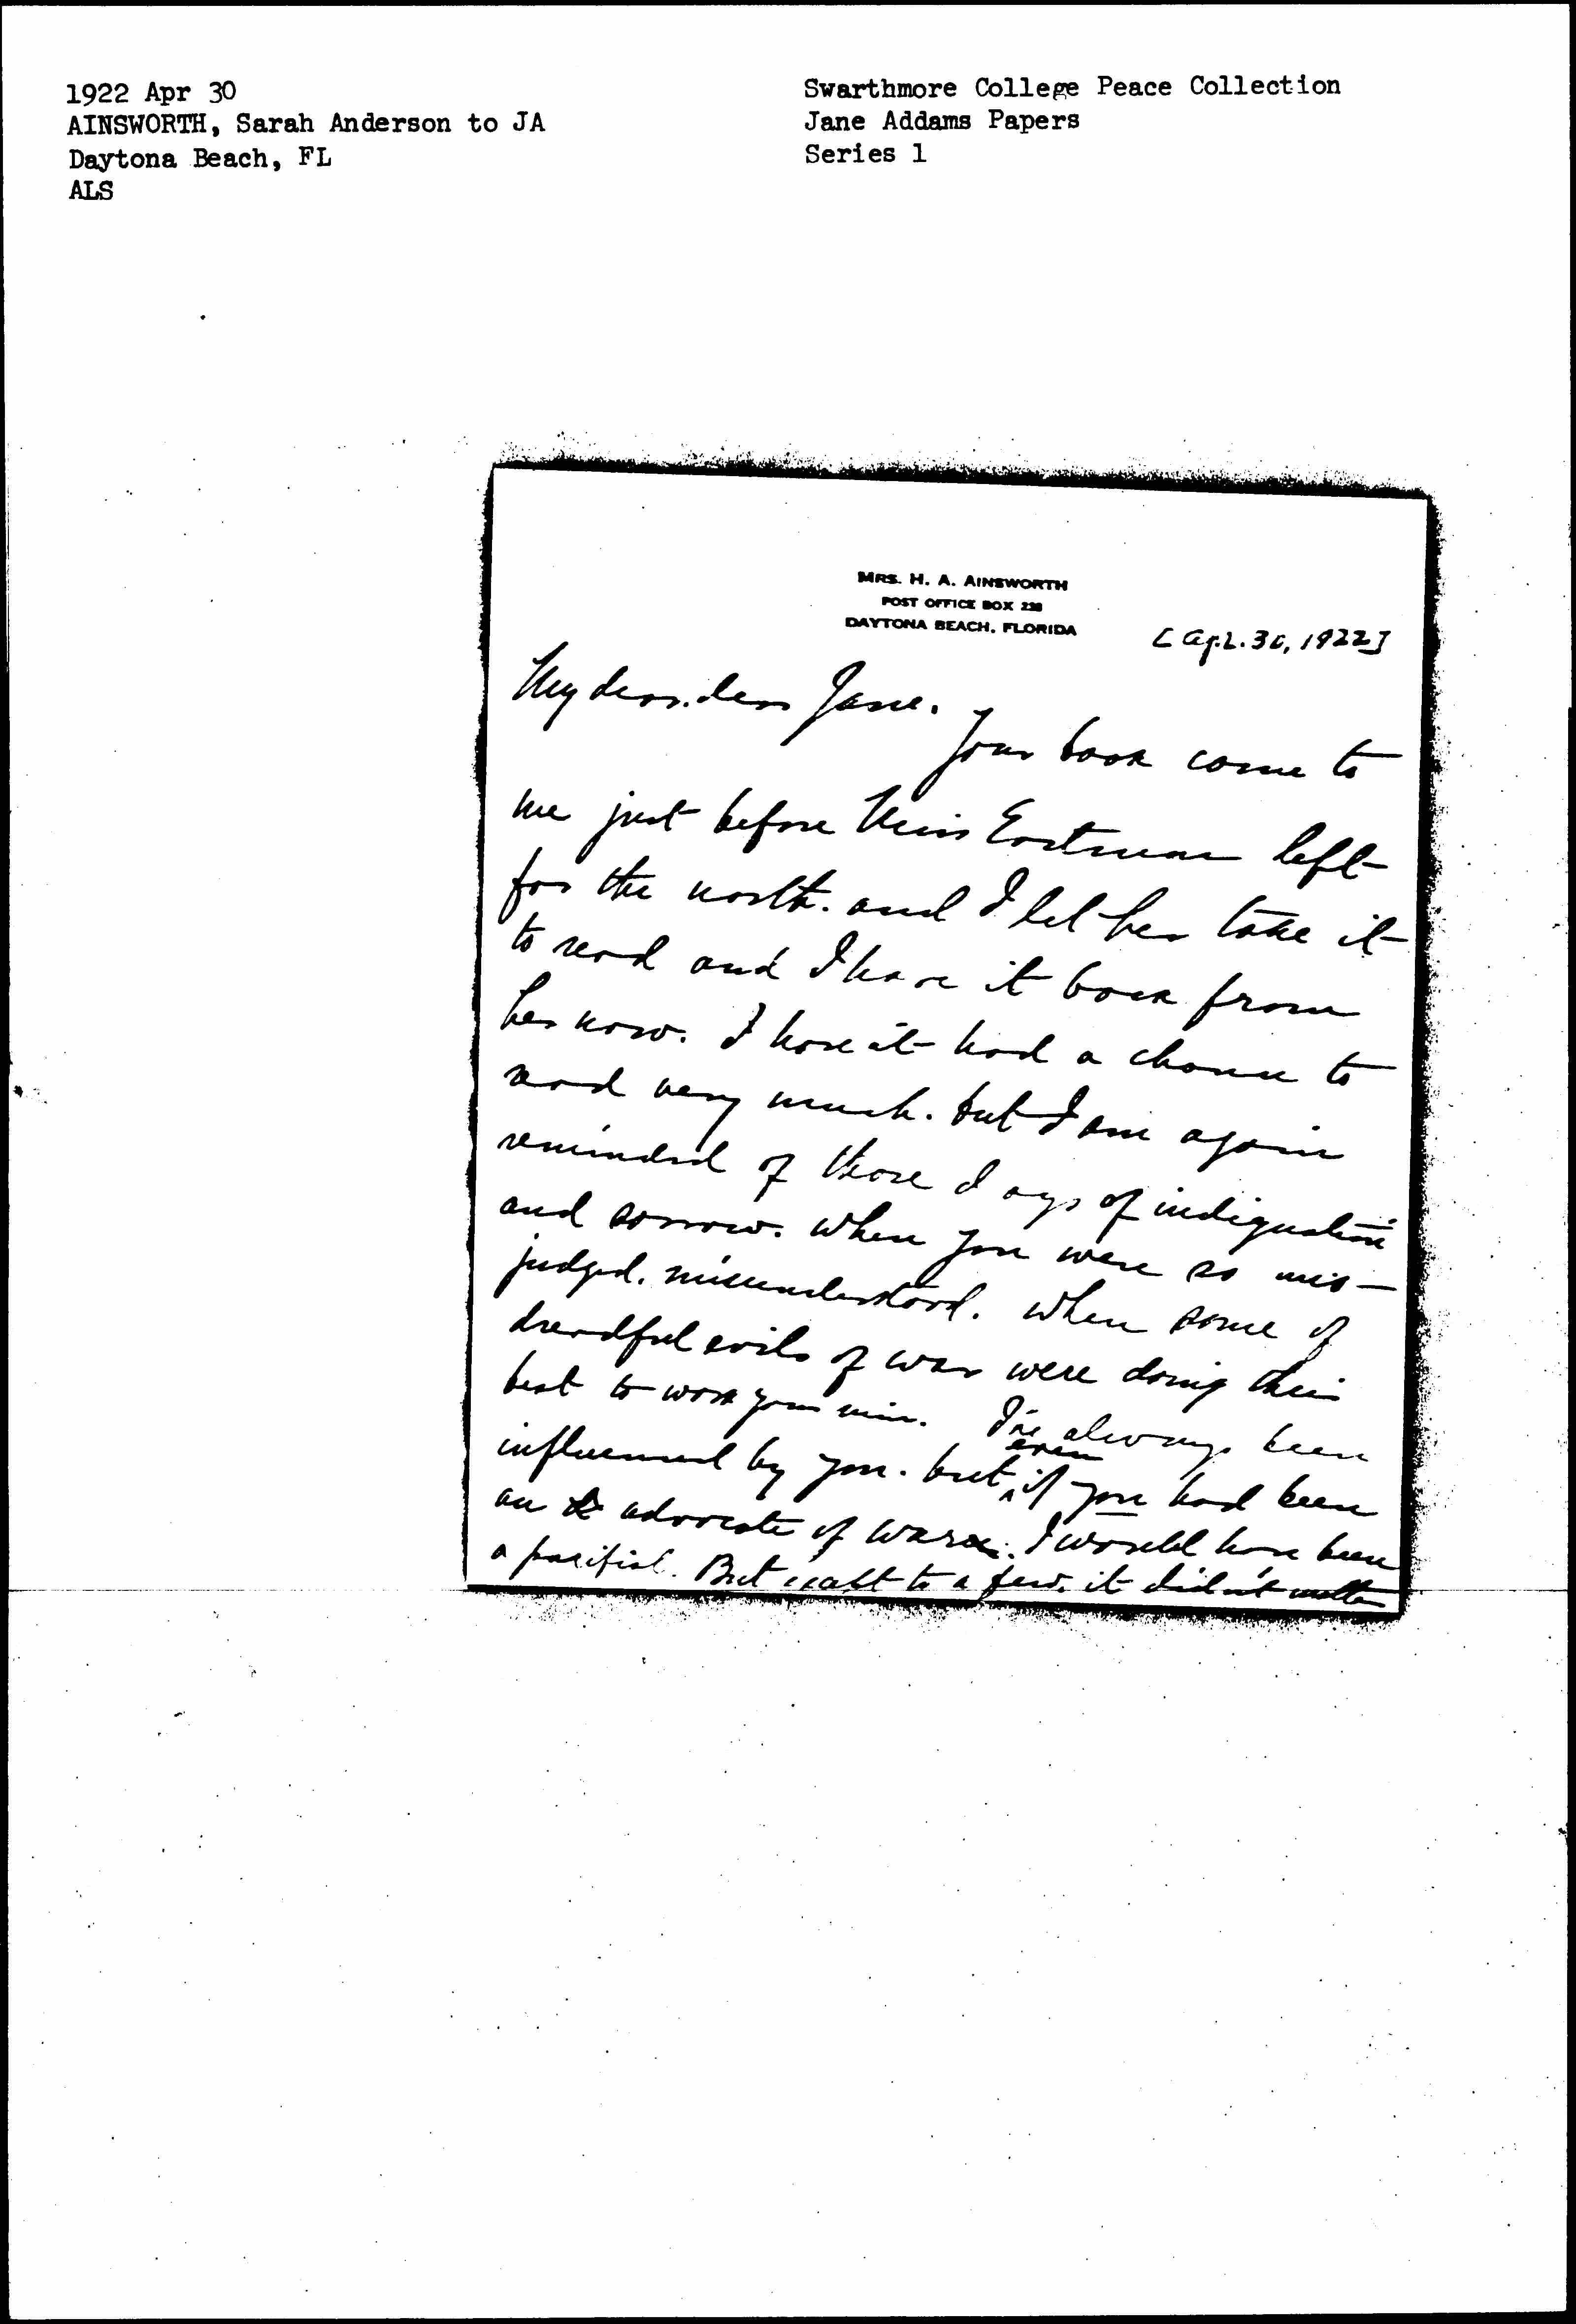 1922 Apr 30
AINSWORTH, Sarah Anderson to JA
Daytona Beach, FL
ALS
Swarthmore College Peace Collection
Jane Addams Papers
Series 1
MRS. H. A. AINSWORTH
POST OFFICE BOX 238
DAYTONA BEACH, FLORIDA
[Apl. 30, 1922]
My dear. dear Jane.
Your book came to
me just before Miss Eastman left
for the north. and I let her take it
to read and I have it back from
her now. I havn't had a chance to
read very much. but I am again
reminded of those days of indignation
and sorrow. when you were so mis-
judged. misunderstood. when some of
dreadful evils of war were doing their
best to work your ruin. I've always been
influenced by you. but even if you had been
an advocate of war. I would have been
a pacifist. But except to a few. it didn't matter